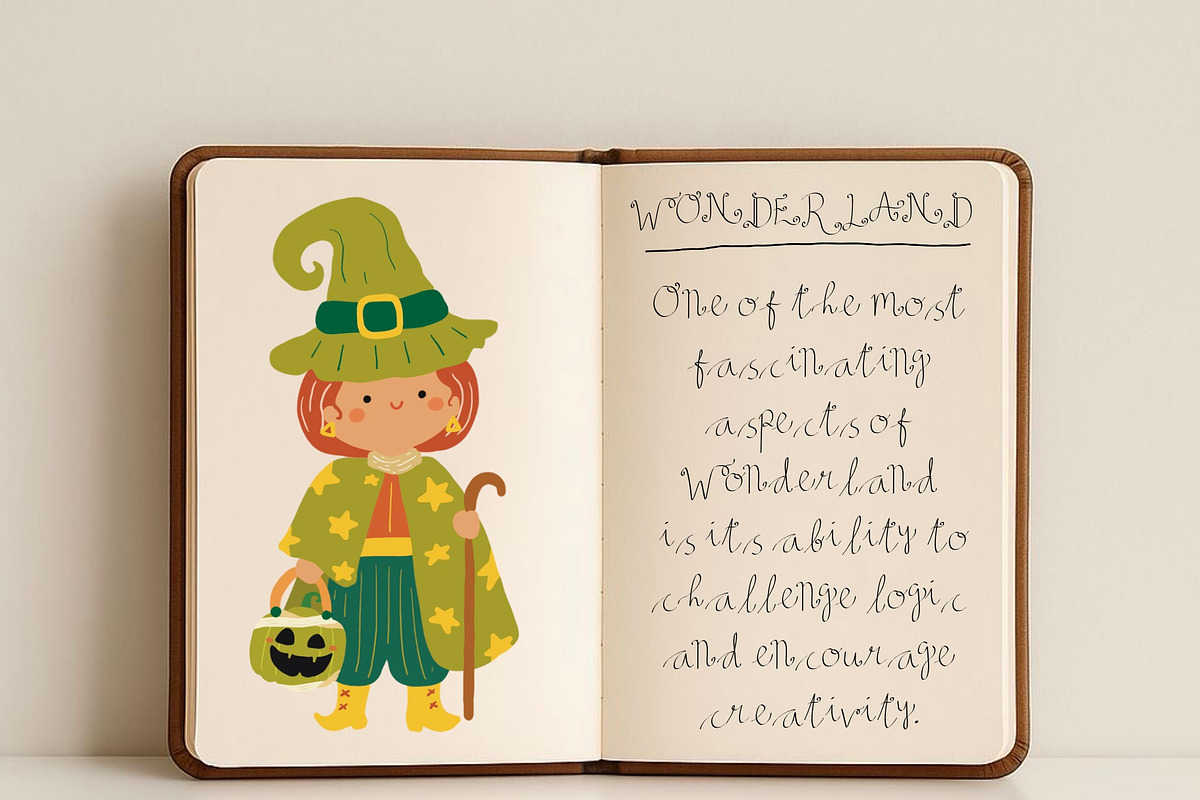 WONDERLAND
One of the most
fascinating
aspects of
Wonderland
is its ability to
challenge logic
and encourage
creativity.